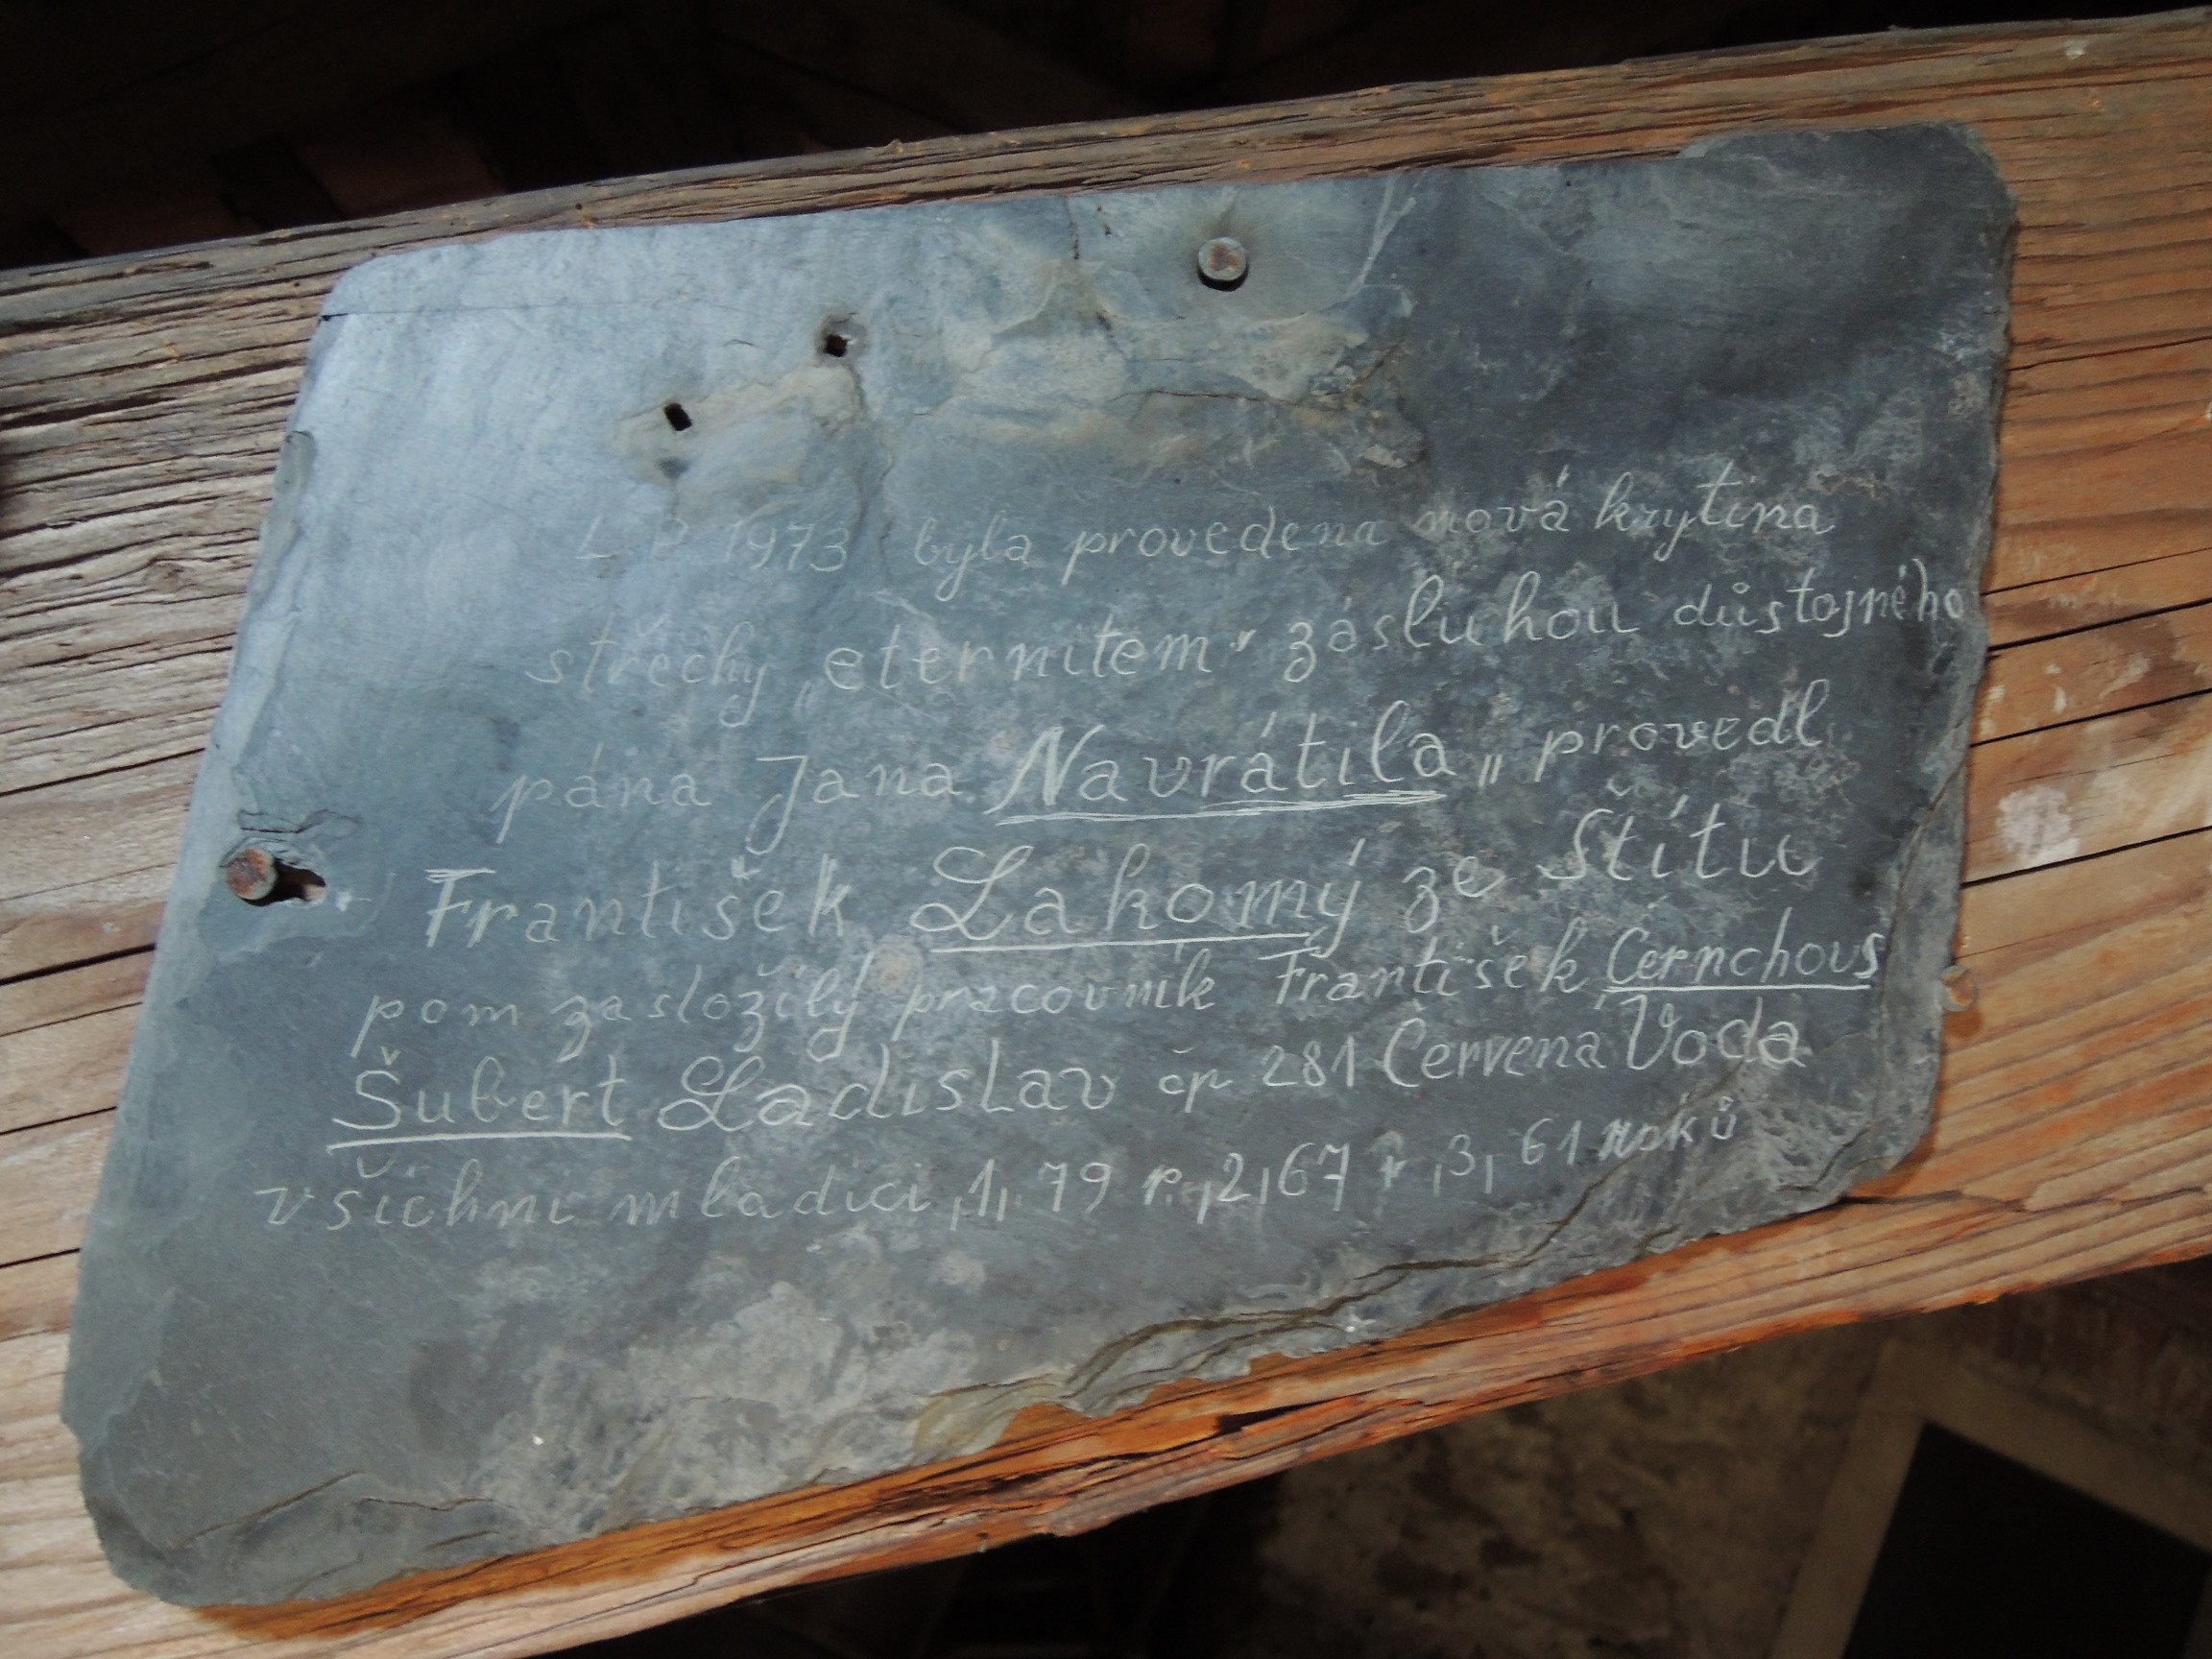 L. P. 1973 byla provedena nová krytina
střechy „eternitem" zásluhou důstojného
pána Jana Navrátila „ provedl
František Lakomý ze Štítu
pom zasložilý pracovník František Černchous
Šubert Ladislav čp 281 Červená Voda
všichni mladíci ,1, 79 r. ,2, 67 r ,3, 61 roků